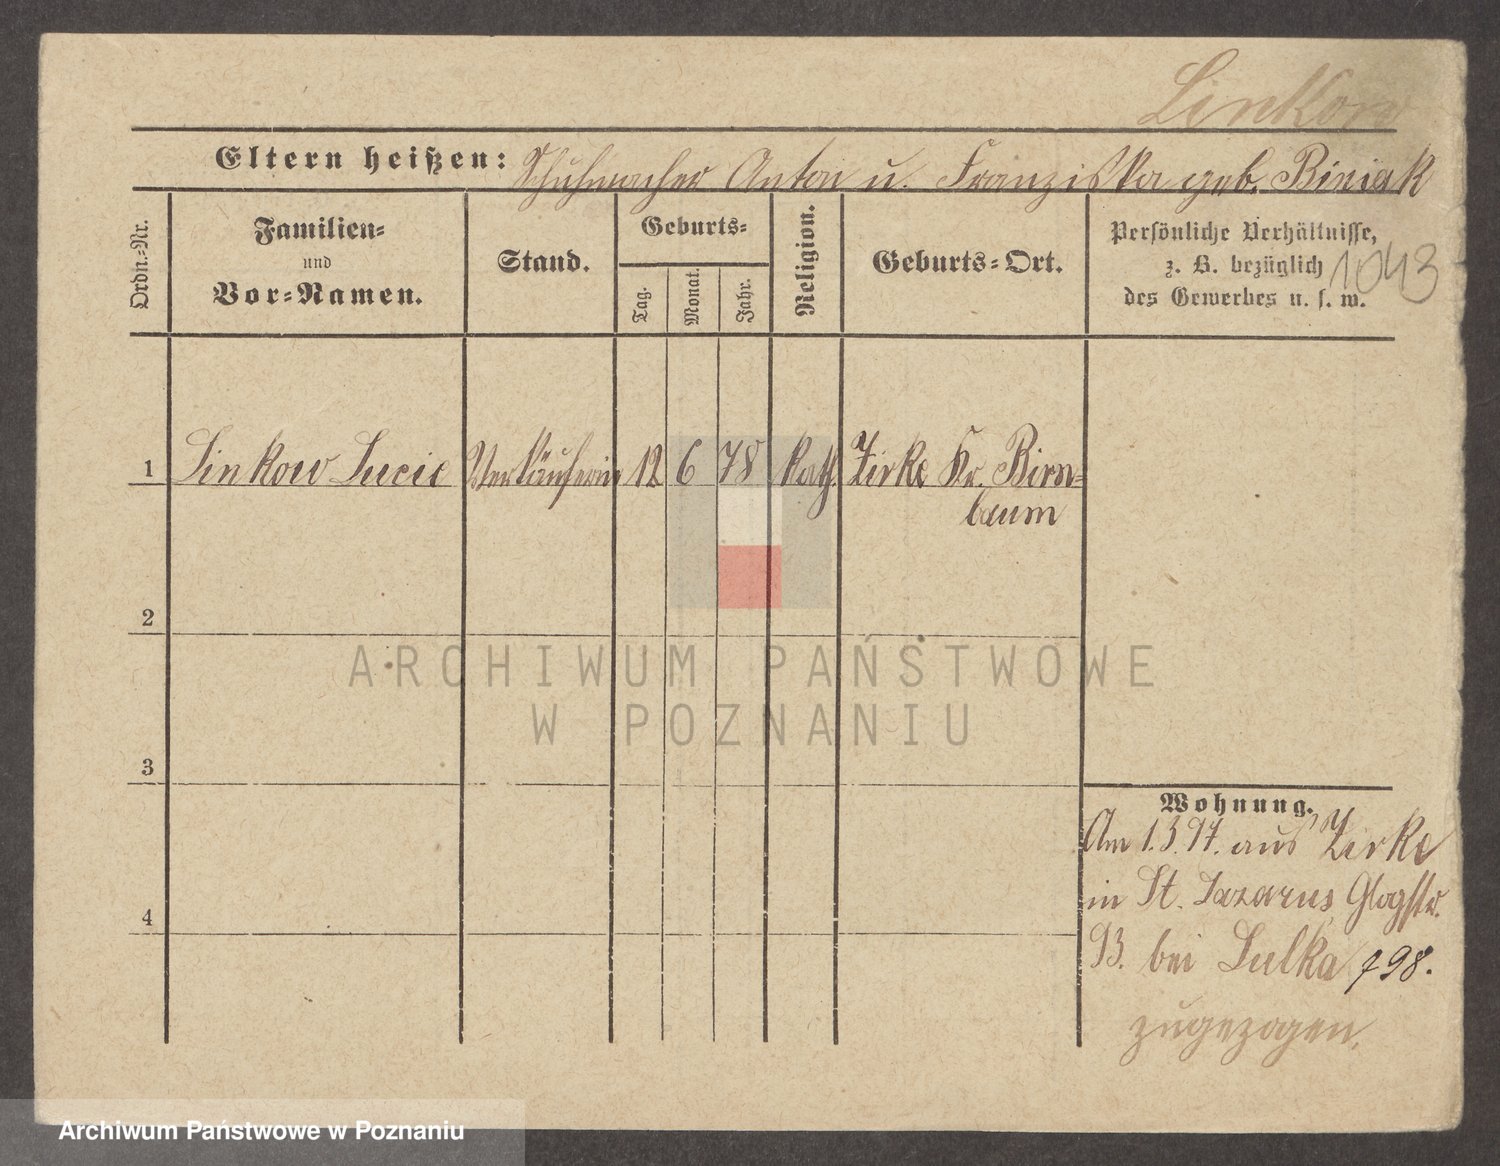 Linkow
Eltern heißen: Schuhmacher Anton u. Franziska geb. Biniak
Ordn.-Nr.
Familien-
und
Vor-Namen.
Stand.
Geburts-
Tag.
Monat.
Jahr.
Religion.
Geburts-Ort.
Persönliche Verhältnisse,
z. B. bezüglich
des Gewerbes u. s. w.
1043
1 Linkow Lucie Verkäuferin 12 6 78 kath. Zirke Kr. Birn-
baum
2
ARCHIWUM PAŃSTWOWE
W POZNANIU
3
Wohnung.
Am 1.3.97. aus Zirke
in St. Lazarus, Glogstr.
93. bei Sulka 98.
4
zugezogen.
Archiwum Państwowe w Poznaniu